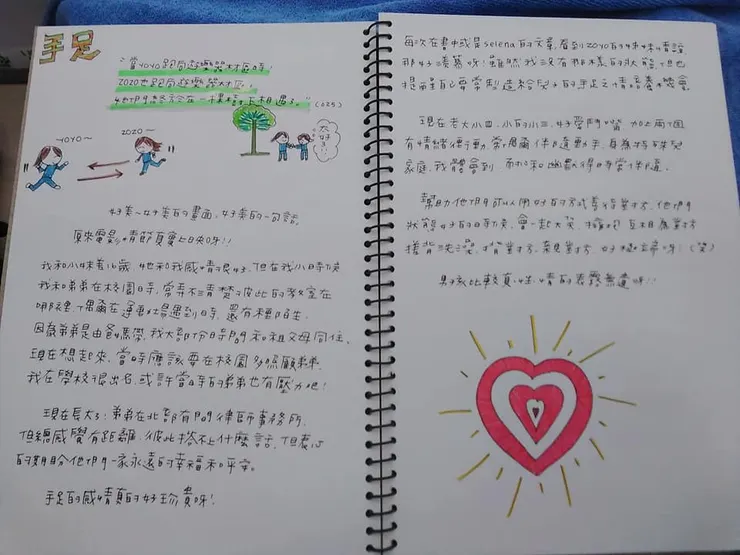 手足
"當YOYO跑向遊樂器材區時!
ZOZO也跑向遊樂器材區,
她們終究會在一棵樹下相遇了。"(025)
YOYO~
ZOZO~
太好了!!
好美~好美的畫面,好美的一句話。
原來電影情節真會上映呀!!
我和小妹差16歲,她和我感情很好,但在我小時候
我和弟弟在校園時,常弄不清楚彼此的教室在
哪裡?偶爾在運動場遇到時,還有種陌生。
因為弟弟是由爸媽帶,我大部份時間和祖父母同住。
現在想起來,當時應該要在校園多照顧弟弟。
我在學校很出名,或許當時的弟弟也有壓力吧!
現在長大了!弟弟在北部有間律師事務所。
但總感覺有距離,彼此搭不上什麼話,但衷心
的期盼他們一家永遠的幸福和平安。
手足的感情真的好珍貴呀!
每次在書中或是Selena的文章,看到ZOYO的姊妹情誼
都好羨慕呀!雖然我沒有那樣的狀態,但也
提醒自己要常製造給兒子的手足之情培養機會。
現在老大小四,小的小三,好愛鬥嘴,加上兩個
有情緒衝動,常需關係和運動,身為特殊兒
家庭,我體會到,耐心和幽默得時常保持。
幫助他們可以用好的方式喜得對方,他們
狀態好的時候,會一起大笑,擁抱,互相為對方
擦背洗澡,揹對方,親對方,好極端呀!(笑)
男孩比較真性情的表露無遺呀!!